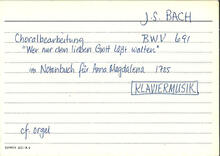 J.S. BACH
Choralbearbeitung BWV 691
"Wer nur den lieben Gott läßt walten."
Notenbuch für Anna Magdalena 1725
KLAVIERMUSIK
cf. orgel